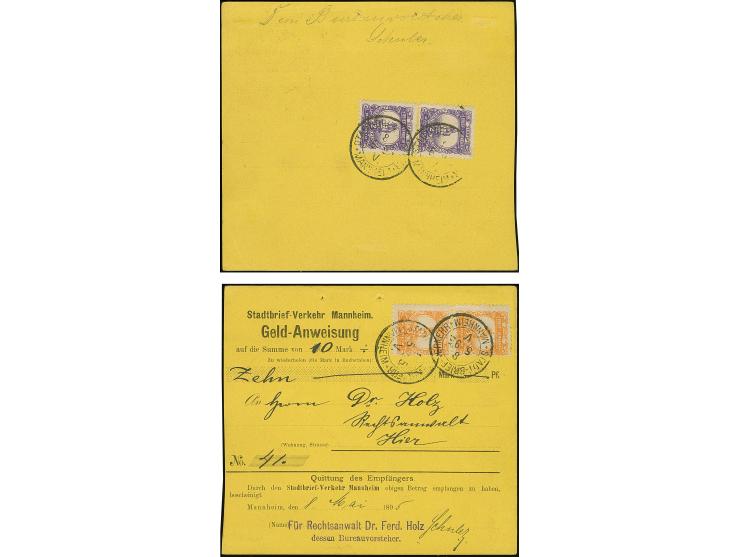 Dem Bureauvorsteher
Schulez
MANNHEIM
MANNHEIM
Stadtbrief-Verkehr Mannheim.
Geld-Anweisung
auf die Summe von 10 Mark
Zu wiederholen (die Mark in Buchstaben)
Zehn Mark Pf.
An Herrn Dr. Holz
Rechtsanwalt
(Wohnung, Strasse) Hier
No. 41.
Quittung des Empfängers
Durch den Stadtbrief-Verkehr Mannheim obigen Betrag empfangen zu haben,
bescheinigt
Mannheim, den 8. Mai 1895
(Name) Für Rechtsanwalt Dr. Ferd. Holz
dessen Bureauvorsteher.